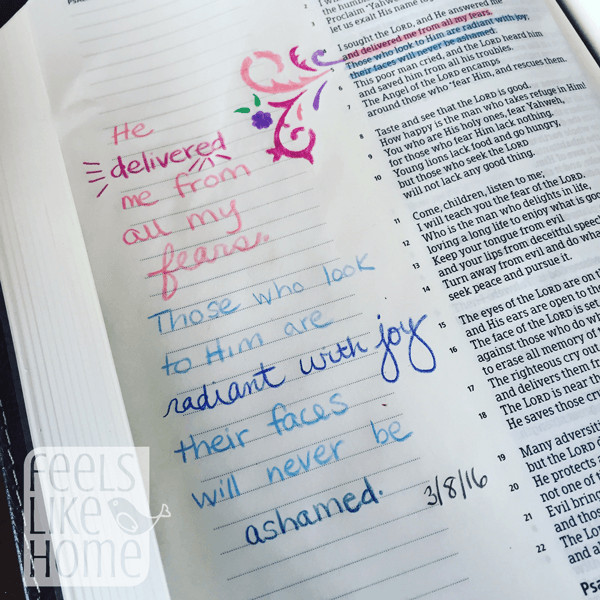 He
delivered
me from
all my
fears.
Those who look
to Him are
radiant with joy
their faces
will never be
ashamed.
3/8/16
FEELS
LIKE
HOME
2
the hum
3
Proclaim "Yahweh
let us exalt His name
4
I sought the LORD, and He answered me
and delivered me from all my fears.
5
Those who look to Him are radiant with joy;
their faces will never be ashamed.
6
This poor man cried, and the LORD heard him
and saved him from all his troubles.
7
The Angel of the LORD encamps
around those who fear Him, and rescues them.
8
Taste and see that the LORD is good.
How happy is the man who takes refuge in Him!
9
You who are His holy ones, fear Yahweh,
for those who fear Him lack nothing.
10
Young lions lack food and go hungry,
but those who seek the LORD
will not lack any good thing.
11
Come, children, listen to me;
I will teach you the fear of the LORD.
12
Who is the man who delights in life,
loving a long life to enjoy what is goo
13
Keep your tongue from evil
and your lips from deceitful speech
14
Turn away from evil and do wha
seek peace and pursue it.
15
The eyes of the LORD are on t
and His ears are open to the
16
The face of the LORD is set
against those who do wh
to erase all memory of t
17
The righteous cry out
and delivers them fr
18
The LORD is near the
He saves those cru
19
Many adversiti
but the LORD d
20
He protects a
not one of t
21
Evil bring
and thos
22
The LO
and al
Psa